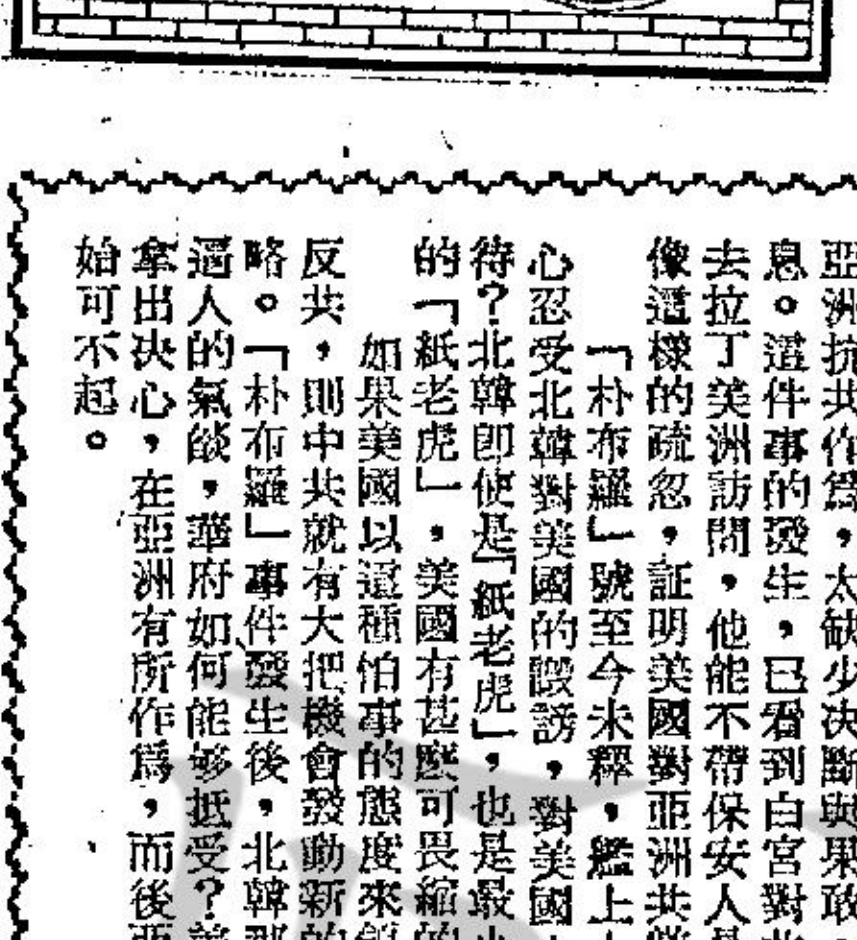 亞洲抗共作爲，太缺少决斷與果敢
息。這件事的發生，已看到白宮對
去拉丁美洲訪問，他能不帶保安人
像這樣的疏忽，証明美國對亞洲共
「朴布羅」號至今未釋，艦上
心忍受北韓對美國的譭謗，對美國
待？北韓卽使是「紙老虎」，也是最
的「紙老虎」，美國有甚麼可畏縮的
如果美國以這種怕事的態度來
反共，則中共就有大把機會發動新的
略。「朴布羅」事件發生後，北韓那
逼人的氣燄，華府如何能够抵受？美
拿出决心，在亞洲有所作爲，而後亞
始可不起。